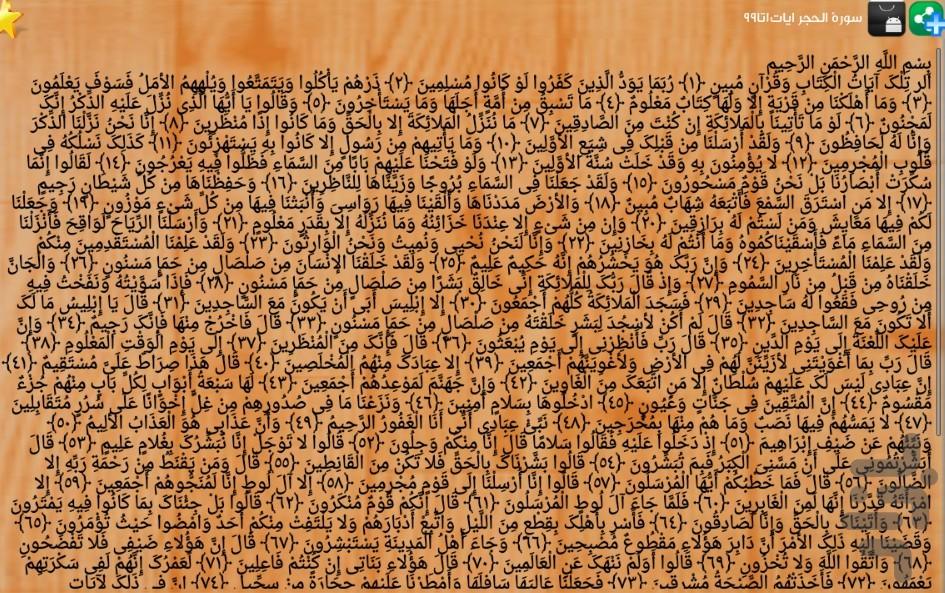 سورة الحجر ایات۱تا۹۹
بِسْمِ اللَّهِ الرَّحْمَنِ الرَّحِيمِ
الر تِلْكَ آيَاتُ الْكِتَابِ وَقُرْآنٍ مُبِينٍ ﴿۱﴾ رُبَمَا يَوَدُّ الَّذِينَ كَفَرُوا لَوْ كَانُوا مُسْلِمِينَ ﴿۲﴾ ذَرْهُمْ يَأْكُلُوا وَيَتَمَتَّعُوا وَيُلْهِهِمُ الأَمَلُ فَسَوْفَ يَعْلَمُونَ
﴿۳﴾ وَمَا أَهْلَكْنَا مِن قَرْيَةٍ إِلا وَلَهَا كِتَابٌ مَعْلُومٌ ﴿۴﴾ مَا تَسْبِقُ مِن أُمَّةٍ أَجَلَهَا وَمَا يَسْتَأْخِرُونَ ﴿۵﴾ وَقَالُوا يَا أَيُّهَا الَّذِى نُزِّلَ عَلَيْهِ الذِّكْرُ إِنَّكَ
لَمَجْنُونٌ ﴿۶﴾ لَوْ مَا تَأْتِينَا بِالْمَلائِكَةِ إِنْ كُنْتَ مِنَ الصَّادِقِينَ ﴿۷﴾ مَا نُنَزِّلُ الْمَلائِكَةَ إِلا بِالْحَقِّ وَمَا كَانُوا إِذًا مُنْظَرِينَ ﴿۸﴾ إِنَّا نَحْنُ نَزَّلْنَا الذِّكْرَ
وَإِنَّا لَهُ لَحَافِظُونَ ﴿۹﴾ وَلَقَدْ أَرْسَلْنَا مِن قَبْلِكَ فِى شِيَعِ الأوَّلِينَ ﴿۱۰﴾ وَمَا يَأْتِيهِمْ مِن رَسُولٍ إِلا كَانُوا بِهِ يَسْتَهْزِئُونَ ﴿۱۱﴾ كَذَلِكَ نَسْلُكُهُ فِى
قُلُوبِ الْمُجْرِمِينَ ﴿۱۲﴾ لا يُؤْمِنُونَ بِهِ وَقَدْ خَلَتْ سُنَّةُ الأوَّلِينَ ﴿۱۳﴾ وَلَوْ فَتَحْنَا عَلَيْهِمْ بَابًا مِنَ السَّمَاءِ فَظَلُّوا فِيهِ يَعْرُجُونَ ﴿۱۴﴾ لَقَالُوا إِنَّمَا
سُكِّرَتْ أَبْصَارُنَا بَلْ نَحْنُ قَوْمٌ مَسْحُورُونَ ﴿۱۵﴾ وَلَقَدْ جَعَلْنَا فِى السَّمَاءِ بُرُوجًا وَزَيَّنَّاهَا لِلنَّاظِرِينَ ﴿۱۶﴾ وَحَفِظْنَاهَا مِن كُلِّ شَيْطَانٍ رَجِيمٍ
﴿۱۷﴾ إِلا مَنِ اسْتَرَقَ السَّمْعَ فَأَتْبَعَهُ شِهَابٌ مُبِينٌ ﴿۱۸﴾ وَالأرْضَ مَدَدْنَاهَا وَأَلْقَيْنَا فِيهَا رَوَاسِىَ وَأَنْبَتْنَا فِيهَا مِن كُلِّ شَىْءٍ مَوْزُونٍ ﴿۱۹﴾ وَجَعَلْنَا
لَكُمْ فِيهَا مَعَايِشَ وَمَن لَسْتُمْ لَهُ بِرَازِقِينَ ﴿۲۰﴾ وَإِن مِن شَىْءٍ إِلا عِنْدَنَا خَزَائِنُهُ وَمَا نُنَزِّلُهُ إِلا بِقَدَرٍ مَعْلُومٍ ﴿۲۱﴾ وَأَرْسَلْنَا الرِّيَاحَ لَوَاقِحَ فَأَنْزَلْنَا
مِنَ السَّمَاءِ مَاءً فَأَسْقَيْنَاكُمُوهُ وَمَا أَنْتُمْ لَهُ بِخَازِنِينَ ﴿۲۲﴾ وَإِنَّا لَنَحْنُ نُحْيِى وَنُمِيتُ وَنَحْنُ الْوَارِثُونَ ﴿۲۳﴾ وَلَقَدْ عَلِمْنَا الْمُسْتَقْدِمِينَ مِنْكُمْ
وَلَقَدْ عَلِمْنَا الْمُسْتَأْخِرِينَ ﴿۲۴﴾ وَإِنَّ رَبَّكَ هُوَ يَحْشُرُهُمْ إِنَّهُ حَكِيمٌ عَلِيمٌ ﴿۲۵﴾ وَلَقَدْ خَلَقْنَا الإنْسَانَ مِن صَلْصَالٍ مِن حَمَإٍ مَسْنُونٍ ﴿۲۶﴾ وَالْجَانَّ
خَلَقْنَاهُ مِن قَبْلُ مِن نَارِ السَّمُومِ ﴿۲۷﴾ وَإِذْ قَالَ رَبُّكَ لِلْمَلائِكَةِ إِنِّى خَالِقٌ بَشَرًا مِن صَلْصَالٍ مِن حَمَإٍ مَسْنُونٍ ﴿۲۸﴾ فَإِذَا سَوَّيْتُهُ وَنَفَخْتُ فِيهِ
مِن رُوحِى فَقَعُوا لَهُ سَاجِدِينَ ﴿۲۹﴾ فَسَجَدَ الْمَلائِكَةُ كُلُّهُمْ أَجْمَعُونَ ﴿۳۰﴾ إِلا إِبْلِيسَ أَبَى أَن يَكُونَ مَعَ السَّاجِدِينَ ﴿۳۱﴾ قَالَ يَا إِبْلِيسُ مَا لَكَ
أَلا تَكُونَ مَعَ السَّاجِدِينَ ﴿۳۲﴾ قَالَ لَمْ أَكُنْ لأسْجُدَ لِبَشَرٍ خَلَقْتَهُ مِن صَلْصَالٍ مِن حَمَإٍ مَسْنُونٍ ﴿۳۳﴾ قَالَ فَاخْرُجْ مِنْهَا فَإِنَّكَ رَجِيمٌ ﴿۳۴﴾ وَإِنَّ
عَلَيْكَ اللَّعْنَةَ إِلَى يَوْمِ الدِّينِ ﴿۳۵﴾ قَالَ رَبِّ فَأَنْظِرْنِى إِلَى يَوْمِ يُبْعَثُونَ ﴿۳۶﴾ قَالَ فَإِنَّكَ مِنَ الْمُنْظَرِينَ ﴿۳۷﴾ إِلَى يَوْمِ الْوَقْتِ الْمَعْلُومِ ﴿۳۸﴾
قَالَ رَبِّ بِمَا أَغْوَيْتَنِى لأزَيِّنَنَّ لَهُمْ فِى الأرْضِ وَلأغْوِيَنَّهُمْ أَجْمَعِينَ ﴿۳۹﴾ إِلا عِبَادَكَ مِنْهُمُ الْمُخْلَصِينَ ﴿۴۰﴾ قَالَ هَذَا صِرَاطٌ عَلَىَّ مُسْتَقِيمٌ ﴿۴۱﴾
إِنَّ عِبَادِى لَيْسَ لَكَ عَلَيْهِمْ سُلْطَانٌ إِلا مَنِ اتَّبَعَكَ مِنَ الْغَاوِينَ ﴿۴۲﴾ وَإِنَّ جَهَنَّمَ لَمَوْعِدُهُمْ أَجْمَعِينَ ﴿۴۳﴾ لَهَا سَبْعَةُ أَبْوَابٍ لِكُلِّ بَابٍ مِنْهُمْ جُزْءٌ
مَقْسُومٌ ﴿۴۴﴾ إِنَّ الْمُتَّقِينَ فِى جَنَّاتٍ وَعُيُونٍ ﴿۴۵﴾ ادْخُلُوهَا بِسَلامٍ آمِنِينَ ﴿۴۶﴾ وَنَزَعْنَا مَا فِى صُدُورِهِمْ مِن غِلٍّ إِخْوَانًا عَلَى سُرُرٍ مُتَقَابِلِينَ
﴿۴۷﴾ لا يَمَسُّهُمْ فِيهَا نَصَبٌ وَمَا هُمْ مِنْهَا بِمُخْرَجِينَ ﴿۴۸﴾ نَبِّئْ عِبَادِى أَنِّى أَنَا الْغَفُورُ الرَّحِيمُ ﴿۴۹﴾ وَأَنَّ عَذَابِى هُوَ الْعَذَابُ الألِيمُ ﴿۵۰﴾
وَنَبِّئْهُمْ عَن ضَيْفِ إِبْرَاهِيمَ ﴿۵۱﴾ إِذْ دَخَلُوا عَلَيْهِ فَقَالُوا سَلامًا قَالَ إِنَّا مِنْكُمْ وَجِلُونَ ﴿۵۲﴾ قَالُوا لا تَوْجَلْ إِنَّا نُبَشِّرُكَ بِغُلامٍ عَلِيمٍ ﴿۵۳﴾ قَالَ
أَبَشَّرْتُمُونِى عَلَى أَن مَسَّنِىَ الْكِبَرُ فَبِمَ تُبَشِّرُونَ ﴿۵۴﴾ قَالُوا بَشَّرْنَاكَ بِالْحَقِّ فَلا تَكُنْ مِنَ الْقَانِطِينَ ﴿۵۵﴾ قَالَ وَمَن يَقْنَطُ مِن رَحْمَةِ رَبِّهِ إِلا
الضَّالُّونَ ﴿۵۶﴾ قَالَ فَمَا خَطْبُكُمْ أَيُّهَا الْمُرْسَلُونَ ﴿۵۷﴾ قَالُوا إِنَّا أُرْسِلْنَا إِلَى قَوْمٍ مُجْرِمِينَ ﴿۵۸﴾ إِلا آلَ لُوطٍ إِنَّا لَمُنَجُّوهُمْ أَجْمَعِينَ ﴿۵۹﴾ إِلا
امْرَأَتَهُ قَدَّرْنَا إِنَّهَا لَمِنَ الْغَابِرِينَ ﴿۶۰﴾ فَلَمَّا جَاءَ آلَ لُوطٍ الْمُرْسَلُونَ ﴿۶۱﴾ قَالَ إِنَّكُمْ قَوْمٌ مُنْكَرُونَ ﴿۶۲﴾ قَالُوا بَلْ جِئْنَاكَ بِمَا كَانُوا فِيهِ يَمْتَرُونَ
﴿۶۳﴾ وَأَتَيْنَاكَ بِالْحَقِّ وَإِنَّا لَصَادِقُونَ ﴿۶۴﴾ فَأَسْرِ بِأَهْلِكَ بِقِطْعٍ مِنَ اللَّيْلِ وَاتَّبِعْ أَدْبَارَهُمْ وَلا يَلْتَفِتْ مِنْكُمْ أَحَدٌ وَامْضُوا حَيْثُ تُؤْمَرُونَ ﴿۶۵﴾
وَقَضَيْنَا إِلَيْهِ ذَلِكَ الأمْرَ أَنَّ دَابِرَ هَؤُلاءِ مَقْطُوعٌ مُصْبِحِينَ ﴿۶۶﴾ وَجَاءَ أَهْلُ الْمَدِينَةِ يَسْتَبْشِرُونَ ﴿۶۷﴾ قَالَ إِنَّ هَؤُلاءِ ضَيْفِى فَلا تَفْضَحُونِ
﴿۶۸﴾ وَاتَّقُوا اللَّهَ وَلا تُخْزُونِ ﴿۶۹﴾ قَالُوا أَوَلَمْ نَنْهَكَ عَنِ الْعَالَمِينَ ﴿۷۰﴾ قَالَ هَؤُلاءِ بَنَاتِى إِن كُنْتُمْ فَاعِلِينَ ﴿۷۱﴾ لَعَمْرُكَ إِنَّهُمْ لَفِى سَكْرَتِهِمْ
يَعْمَهُونَ ﴿۷۲﴾ فَأَخَذَتْهُمُ الصَّيْحَةُ مُشْرِقِينَ ﴿۷۳﴾ فَجَعَلْنَا عَالِيَهَا سَافِلَهَا وَأَمْطَرْنَا عَلَيْهِمْ حِجَارَةً مِن سِجِّيلٍ ﴿۷۴﴾ إِنَّ فِى ذَلِكَ لآيَاتٍ